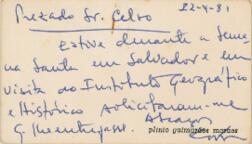 22-4-81
Prezado Sr. Celso
Estive durante a Sema
na Santa em Salvador e em
visita ao Instituto Geográfico
e Histórico solicitaram-me
Abraços
plinio guimarães moraes